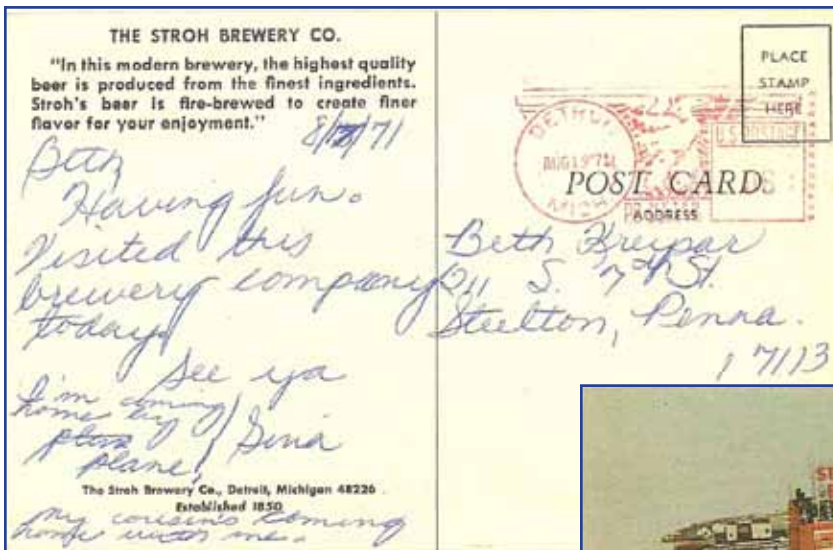 THE STROH BREWERY CO.
"In this modern brewery, the highest quality
beer is produced from the finest ingredients.
Stroh's beer is fire-brewed to create finer
flavor for your enjoyment."
71
Beth
Having fun.
Visited this
brewery company
today.
See ya
Gina
I'm coming
home by
plane
The Stroh Brewery Co., Detroit, Michigan 48226
Established 1850
My cousin's coming
home with me.
PLACE
STAMP
HERE
DETROIT
AUG 19 '71
MICH
U.S. POSTAGE
POST CARD
ADDRESS
Beth
211 S. 7th St.
Steelton, Penna.
17113